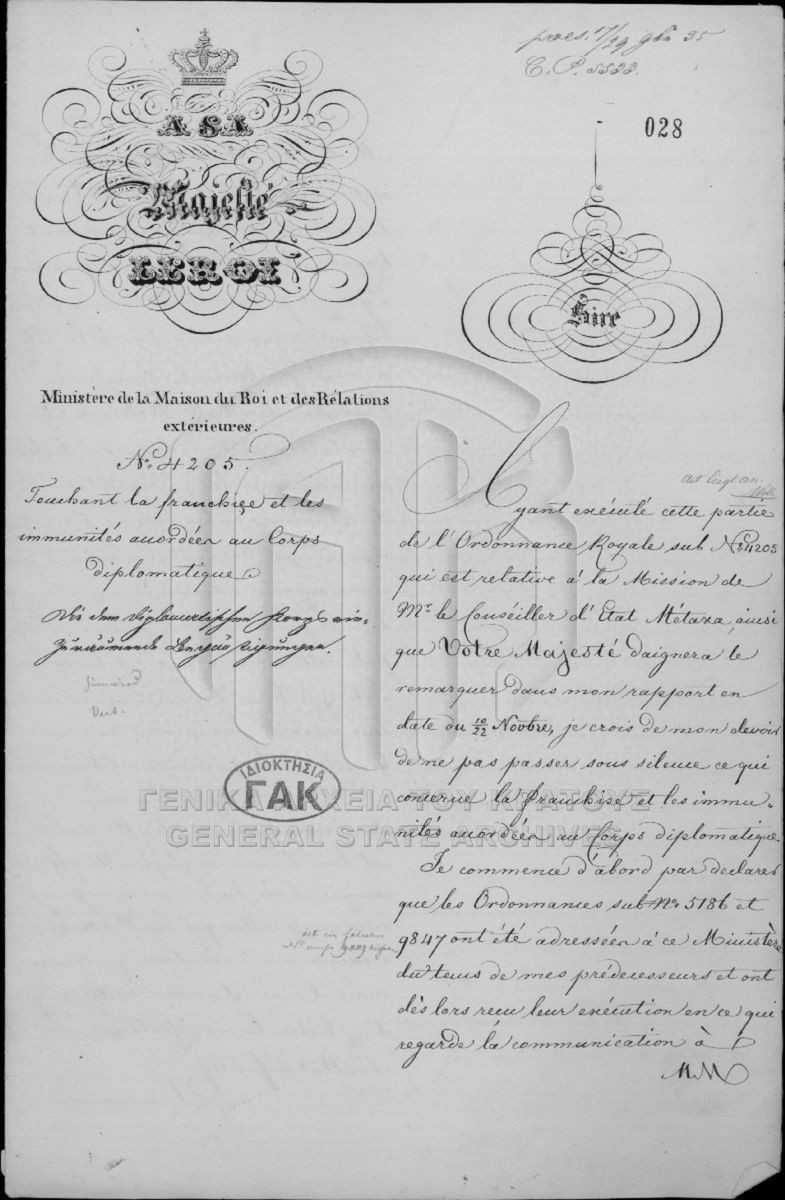 praes. 17/29 9br 35
C. P. 5533.
028
A SA
Majesté
LE ROI
Sire
Ministère de la Maison du Roi et des Rélations
extérieures.
No. 4205.
Touchant la franchise et les
immunités accordées au Corps
diplomatique
Die dem diplomatischen Korps ein-
zuräumende Begünstigungen.
Ayant exécuté cette partie
de l'Ordonnance Royale sub No. 4205
qui est relative à la Mission de
Mr. le Conséiller d'Etat Métaxa, ainsi
que Votre Majesté daignera le
remarquer dans mon rapport en
date du 10/22 Novbre, je crois de mon devoir
de ne pas passer sous silence ce qui
concerne la franchise et les immu-
nités accordées au Corps diplomatique.
Je commence d'abord par declarer
que les Ordonnances sub No. 5186 et
9847 ont été adressées à ce Ministère
du tems de mes prédecesseurs et ont
dès lors reçu leur exécution en ce qui
regarde la communication à
MM
ΙΔΙΟΚΤΗΣΙΑ
ΓΑΚ
ΓΕΝΙΚΑ ΑΡΧΕΙΑ ΤΟΥ ΚΡΑΤΟΥΣ
GENERAL STATE ARCHIVES